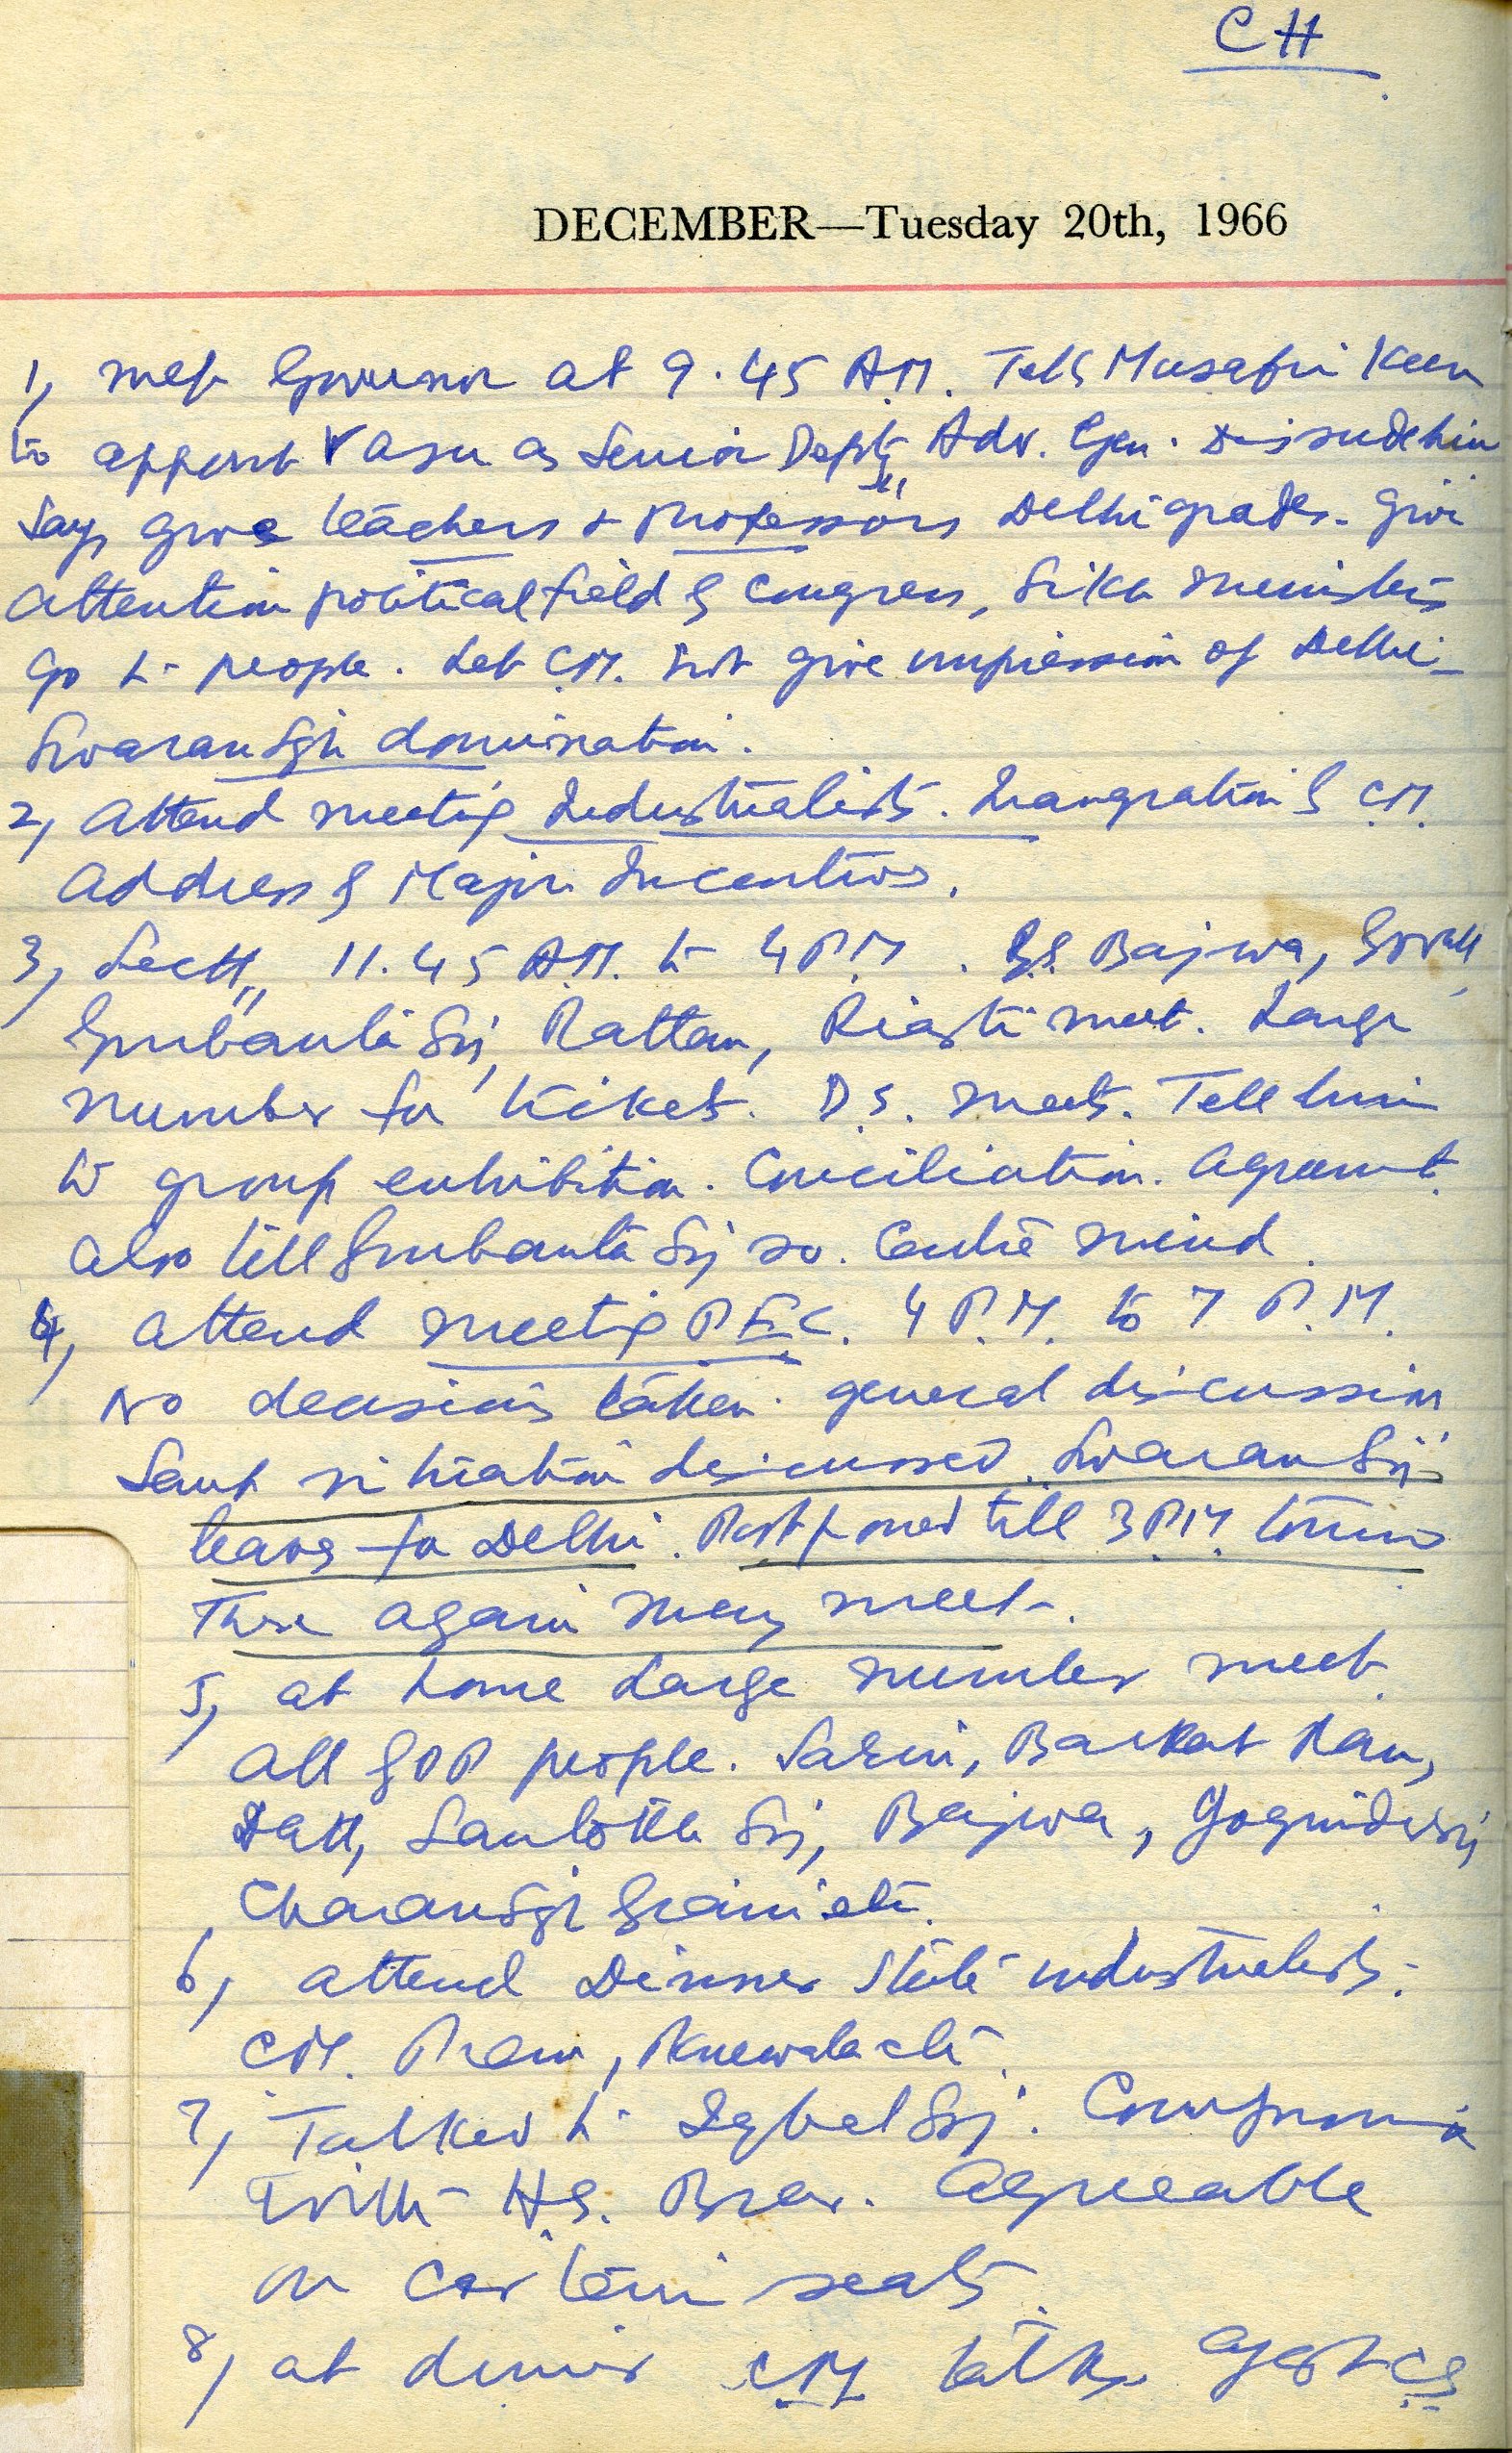 CH
DECEMBER—Tuesday 20th, 1966
1, meet Governor at 9.45 A.M. Tells Musafir Keen
to appoint Vasu as Senior Depty Adv. Gen. Dissuade him
Says give teachers & professors Delhi grades. Give
attention political field & Congress, Sikh Ministers
go to people. Let C.M. not give impression of Delhi –
Swaran Sgh domination.
2, Attend meeting Industrialists. Inaugration & C.M.
Address & Major Incentives.
3, Sectt 11.45 A.M. to 4 P.M. Bajwa,
Gurbanta Sij, Rattan, Riasti meet. Large
number for tickets. D.S. meets. Tell him
to group exhibition. Conciliation. Agreemt.
also tell Gurbanta Sij so. Centre mind.
4, Attend meeting P.E.C. 4 P.M. to 7 P.M.
No decisions taken. general discussion
Sant situation discussed. Swaran Sij
leave for Delhi. Postponed till 3 P.M.
There again may meet.
5, at home Large number meet.
all people. Sarin, Barkat Ram,
Datt, Santokh Sij, Bajwa, Joginder Sij
Charan Sgh etc.
6, attend Dinner State industrialists.
C.M. Prem, etc.
7, Talked to Iqbal Sij. Compromise
With H.S. Brar. Agreeable
on certain seats.
8, at dinner CM talks agst CS